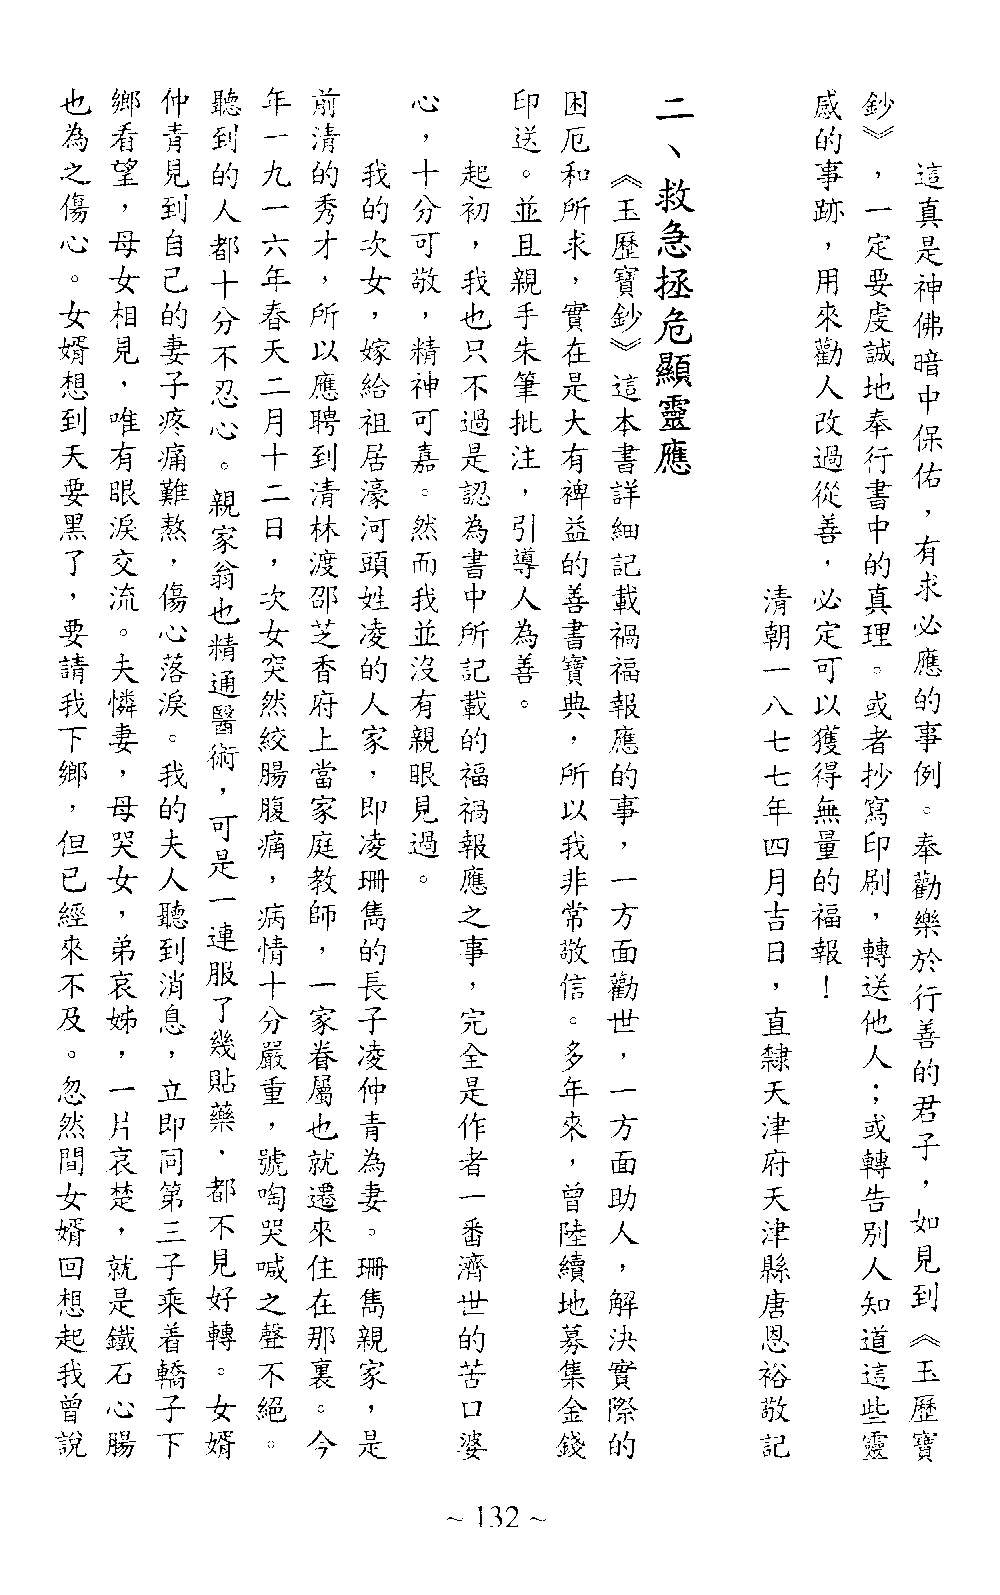 這真是神佛暗中保佑，有求必應的事例。奉勸樂於行善的君子，如見到《玉歷寶
鈔》，一定要虔誠地奉行書中的真理。或者抄寫印刷，轉送他人；或轉告別人知道這些靈
感的事跡，用來勸人改過從善，必定可以獲得無量的福報！
清朝一八七七年四月吉日，直隸天津府天津縣唐恩裕敬記
二、救急拯危顯靈應
《玉歷寶鈔》這本書詳細記載禍福報應的事，一方面勸世，一方面助人，解決實際的
困厄和所求，實在是大有裨益的善書寶典，所以我非常敬信。多年來，曾陸續地募集金錢
印送。並且親手朱筆批注，引導人為善。
起初，我也只不過是認為書中所記載的福禍報應之事，完全是作者一番濟世的苦口婆
心，十分可敬，精神可嘉。然而我並沒有親眼見過。
我的次女，嫁給祖居濠河頭姓凌的人家，即凌珊雋的長子凌仲青為妻。珊雋親家，是
前清的秀才，所以應聘到清林渡邵芝香府上當家庭教師，一家眷屬也就遷來住在那裏。今
年一九一六年春天二月十二日，次女突然絞腸腹痛，病情十分嚴重，號啕哭喊之聲不絕。
聽到的人都十分不忍心。親家翁也精通醫術，可是一連服了幾貼藥，都不見好轉。女婿
仲青見到自己的妻子疼痛難熬，傷心落淚。我的夫人聽到消息，立即同第三子乘着轎子下
鄉看望，母女相見，唯有眼淚交流。夫憐妻，母哭女，弟哀姊，一片哀楚，就是鐵石心腸
也為之傷心。女婿想到天要黑了，要請我下鄉，但已經來不及。忽然間女婿回想起我曾說
~ 132 ~